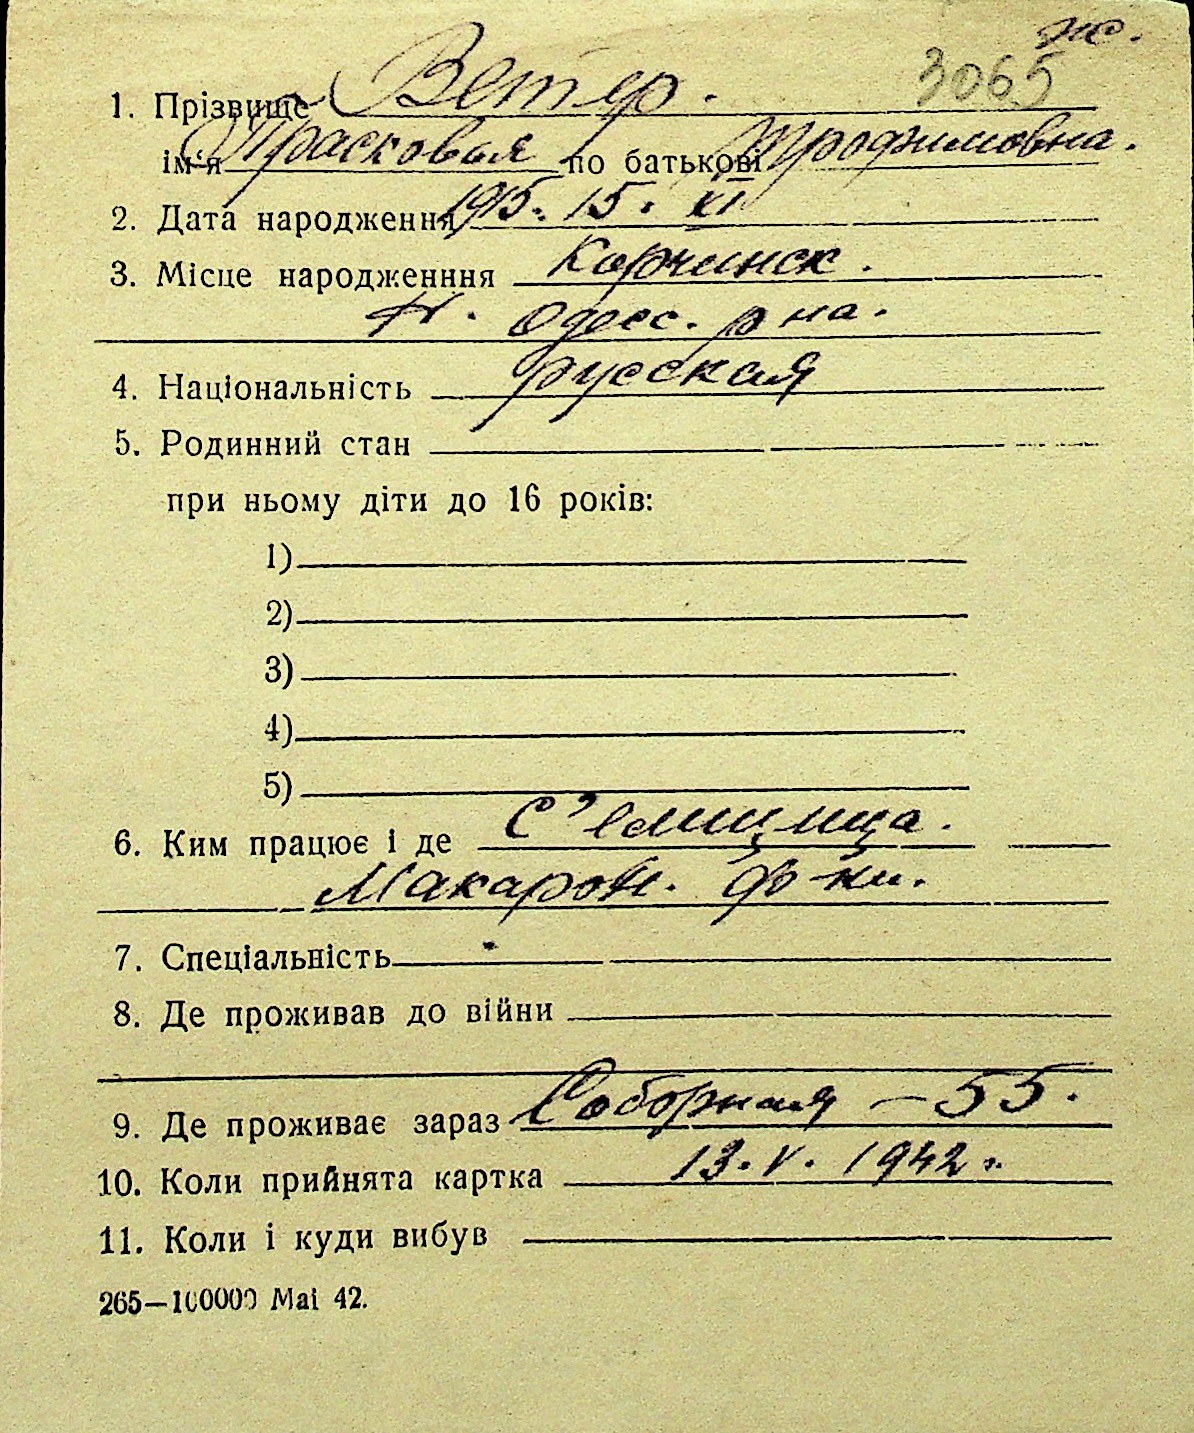 ж.
3065
1. Прізвище Ветер.
ім'я Прасковья по батькові Трофимовна.
2. Дата народження 1915. 15. XI
3. Місце народженння Корчинск.
Н. Одесс. р на.
4. Національність русская
5. Родинний стан
при ньому діти до 16 років:
1)
2)
3)
4)
5)
6. Ким працює і де
Макарон. ф-ки.
7. Спеціальність
8. Де проживав до війни
9. Де проживає зараз Соборная – 55.
10. Коли прийнята картка 13. V. 1942 г.
11. Коли і куди вибув
265—100000 Mai 42.